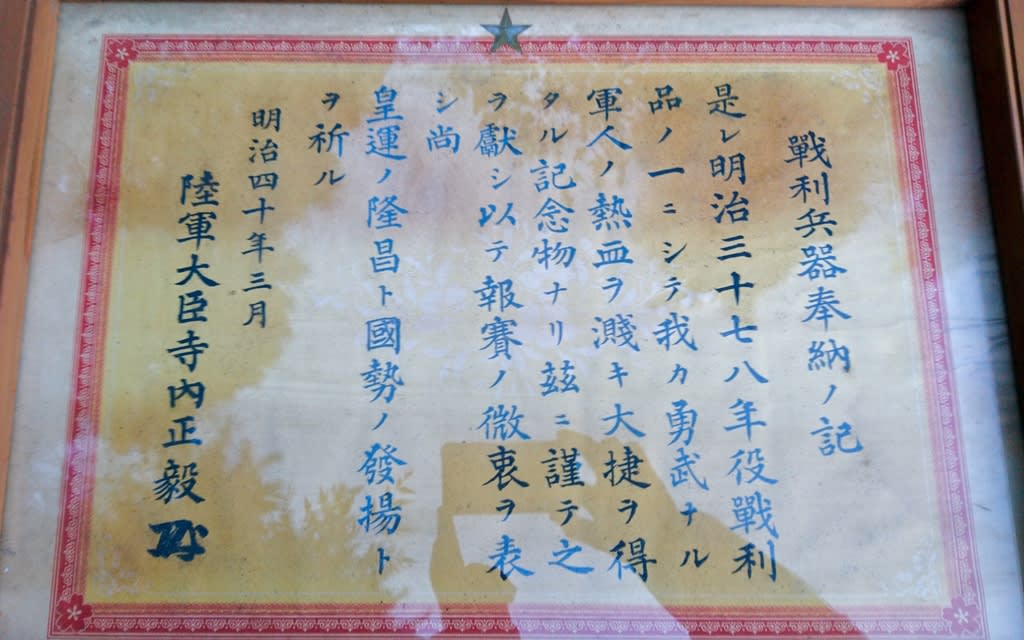 戰利兵器奉納ノ記
是レ明治三十七八年役戰利
品ノ一ニシテ我カ勇武ナル
軍人ノ熱血ヲ濺キ大捷ヲ得
タル記念物ナリ茲ニ謹テ之
ヲ獻シ以テ報賽ノ微衷ヲ表
シ尚
皇運ノ隆昌ト國勢ノ發揚ト
ヲ祈ル
明治四十年三月
陸軍大臣寺内正毅